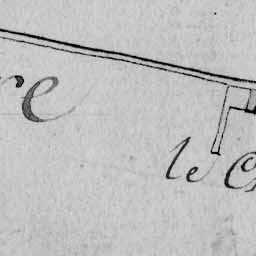 re
le C